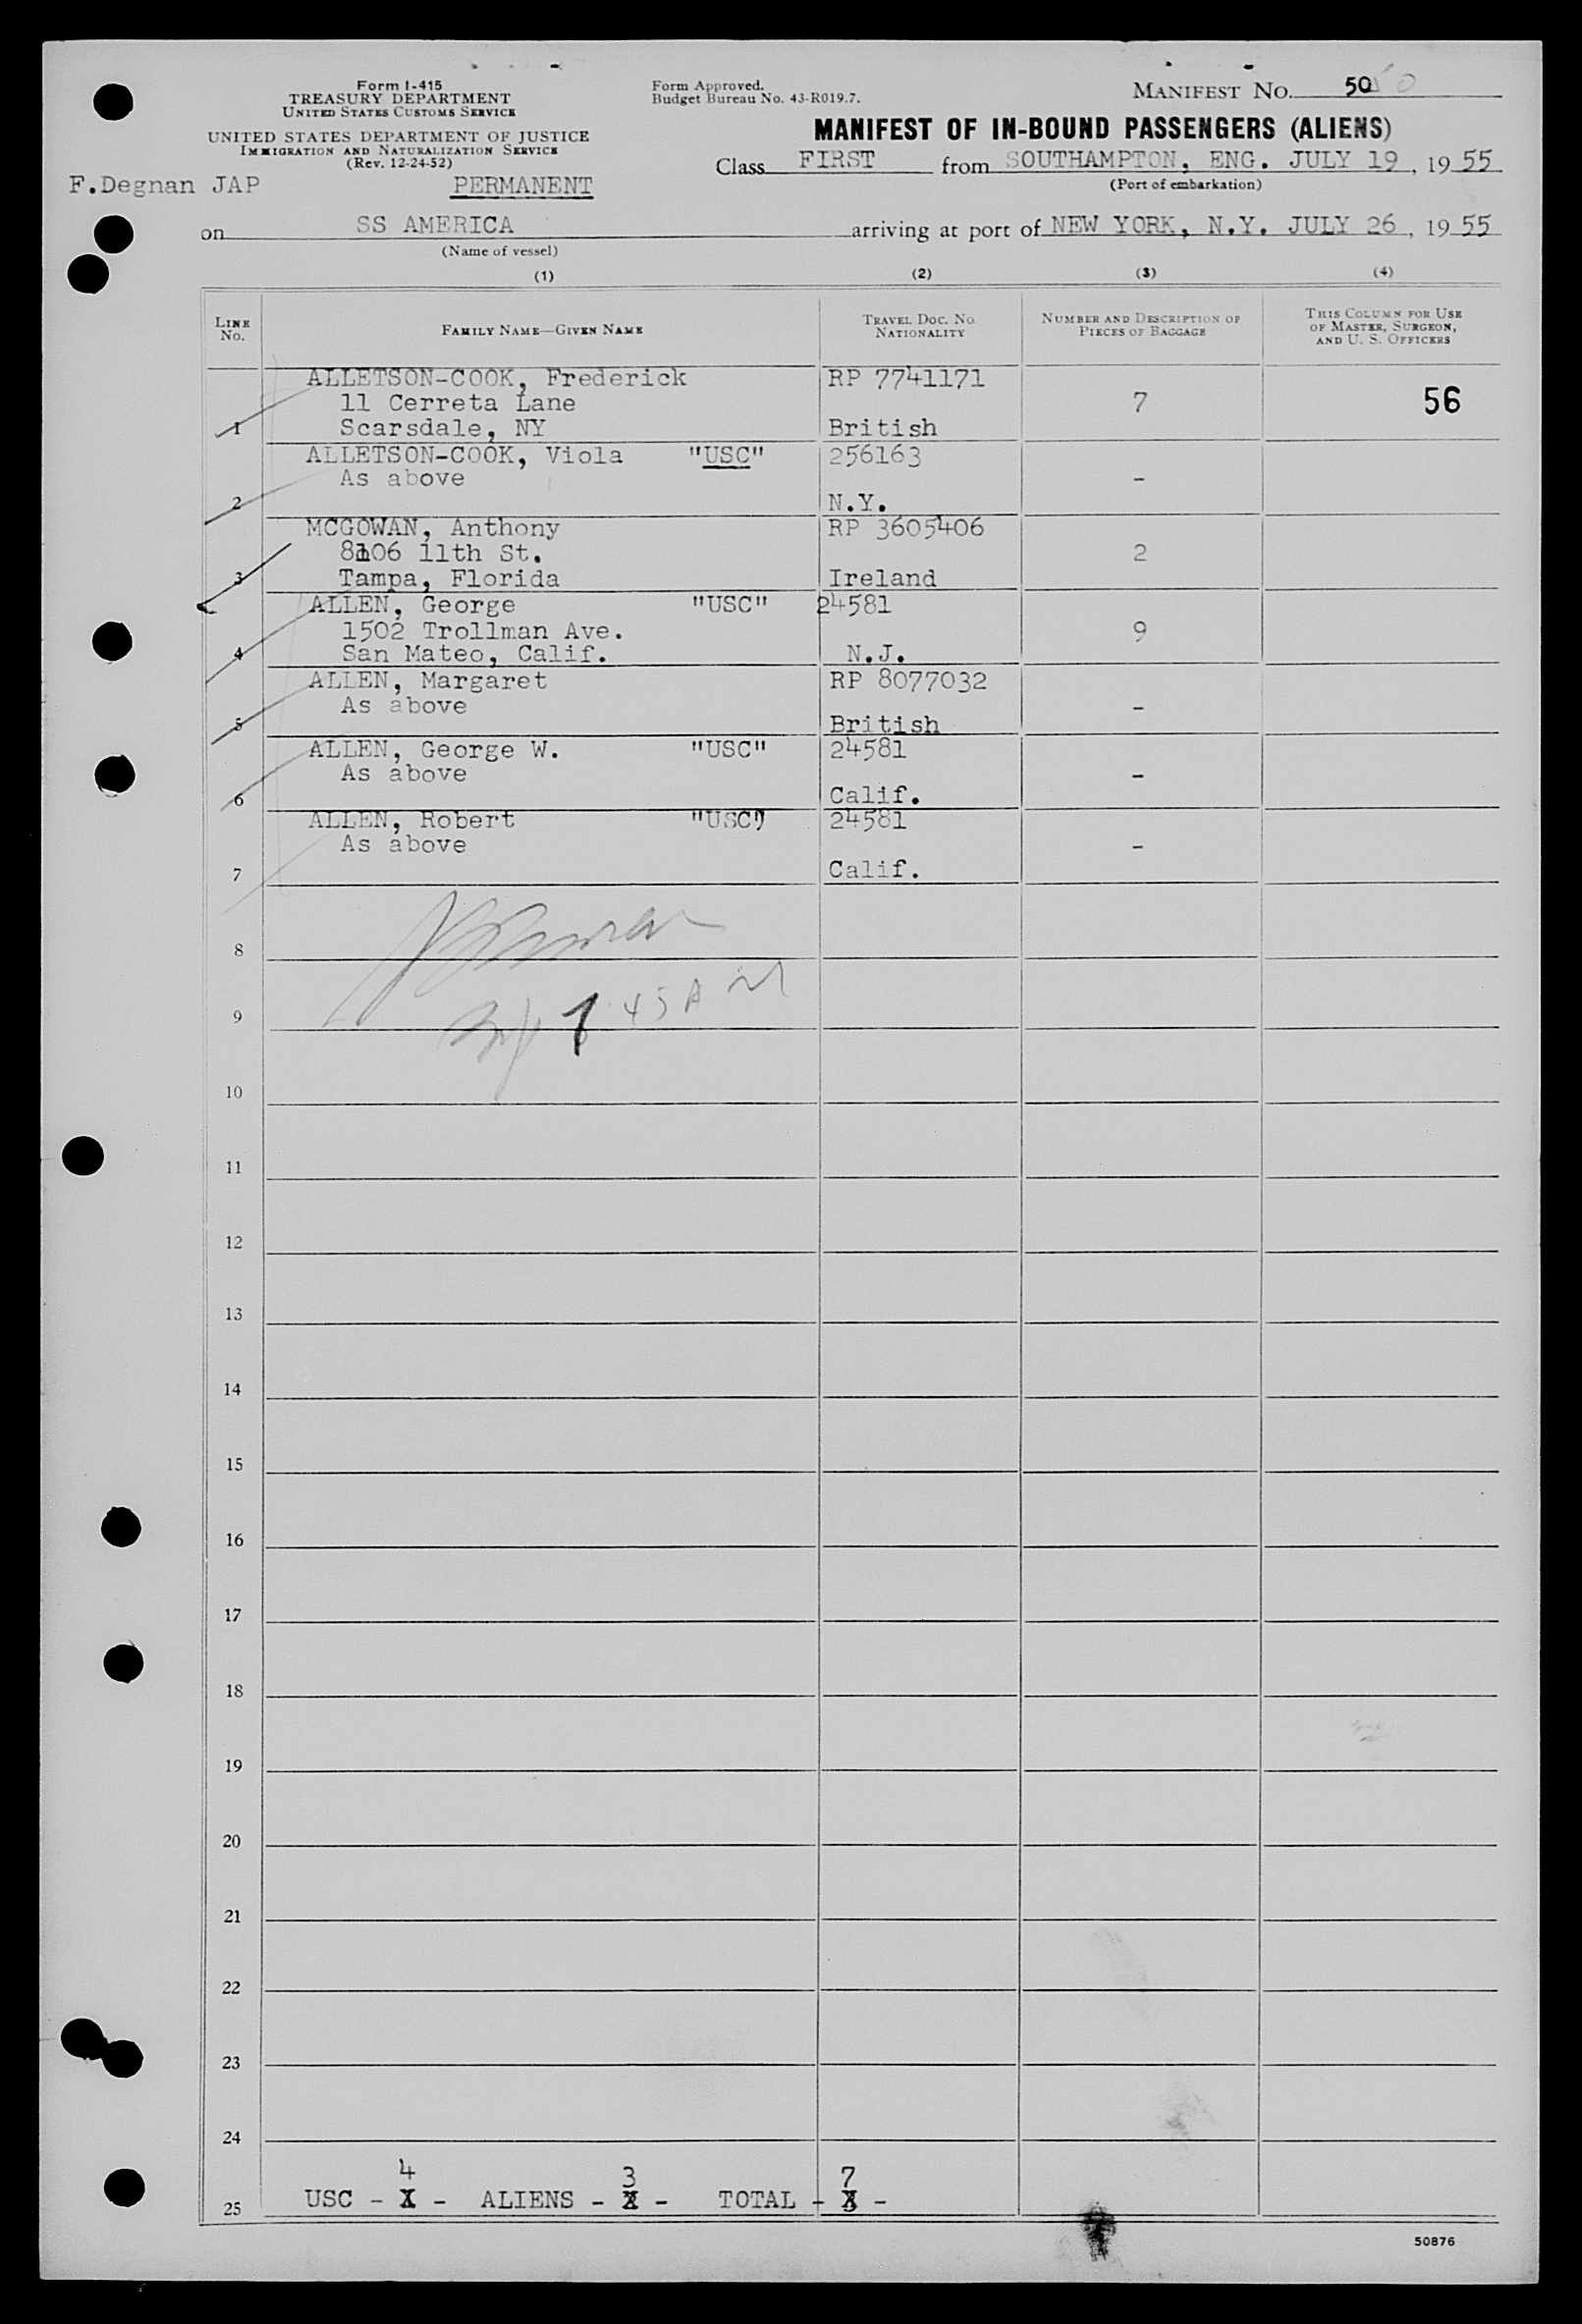 Form I-415
TREASURY DEPARTMENT
UNITED STATES CUSTOMS SERVICE
UNITED STATES DEPARTMENT OF JUSTICE
IMMIGRATION AND NATURALIZATION SERVICE
(Rev. 12-24-52)
Form Approved.
Budget Bureau No. 43-R019.7.
MANIFEST NO. 50
MANIFEST OF IN-BOUND PASSENGERS (ALIENS)
Class FIRST from SOUTHAMPTON, ENG. JULY 19, 19 55
(Port of embarkation)
F.Degnan JAP PERMANENT
on SS AMERICA arriving at port of NEW YORK, N.Y. JULY 26, 19 55
(Name of vessel)
(1) (2) (3) (4)
LINE No. FAMILY NAME—GIVEN NAME TRAVEL DOC. NO. NATIONALITY NUMBER AND DESCRIPTION OF PIECES OF BAGGAGE THIS COLUMN FOR USE OF MASTER, SURGEON, AND U. S. OFFICERS
ALLETSON-COOK, Frederick RP 7741171
11 Cerreta Lane 7 56
1 Scarsdale, NY British
ALLETSON-COOK, Viola "USC" 256163
As above -
2 N.Y.
MCGOWAN, Anthony RP 3605406
8106 11th St. 2
3 Tampa, Florida Ireland
ALLEN, George "USC" 24581
1502 Trollman Ave. 9
4 San Mateo, Calif. N.J.
ALLEN, Margaret RP 8077032
As above -
5 British
ALLEN, George W. "USC" 24581
As above -
6 Calif.
ALLEN, Robert "USC" 24581
As above -
7 Calif.
8
9
45 A M
10
11
12
13
14
15
16
17
18
19
20
21
22
23
24
4 3 7
25 USC - - ALIENS - - TOTAL - -
50876